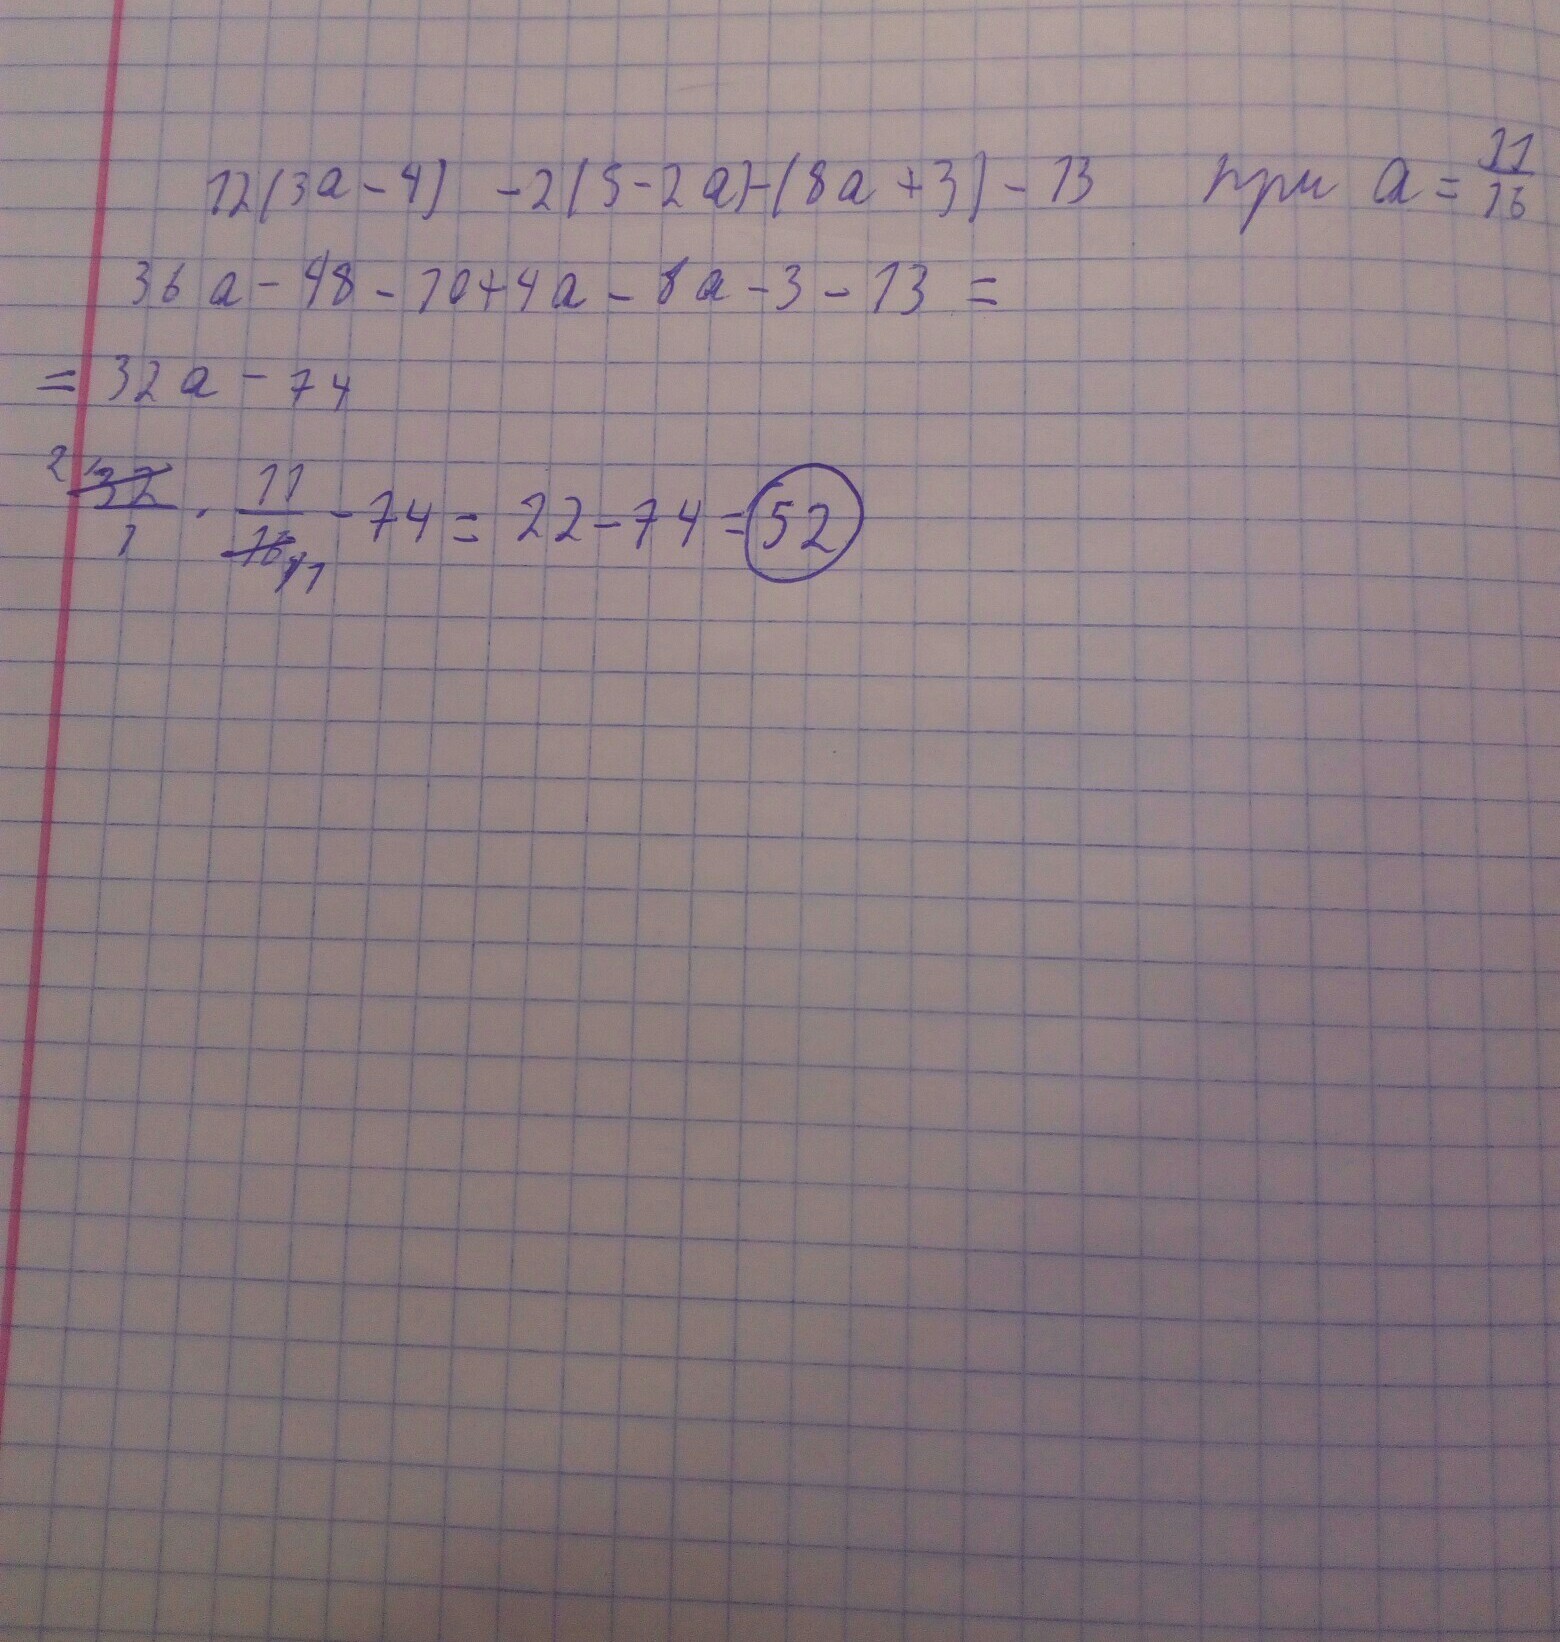 12(3a-4) -2(5-2a)-(8a+3)-13 при a=11/16
36a-48-10+4a-8a-3-13=
=32a-74
2 32/1 · 11/16 1 -74=22-74=52